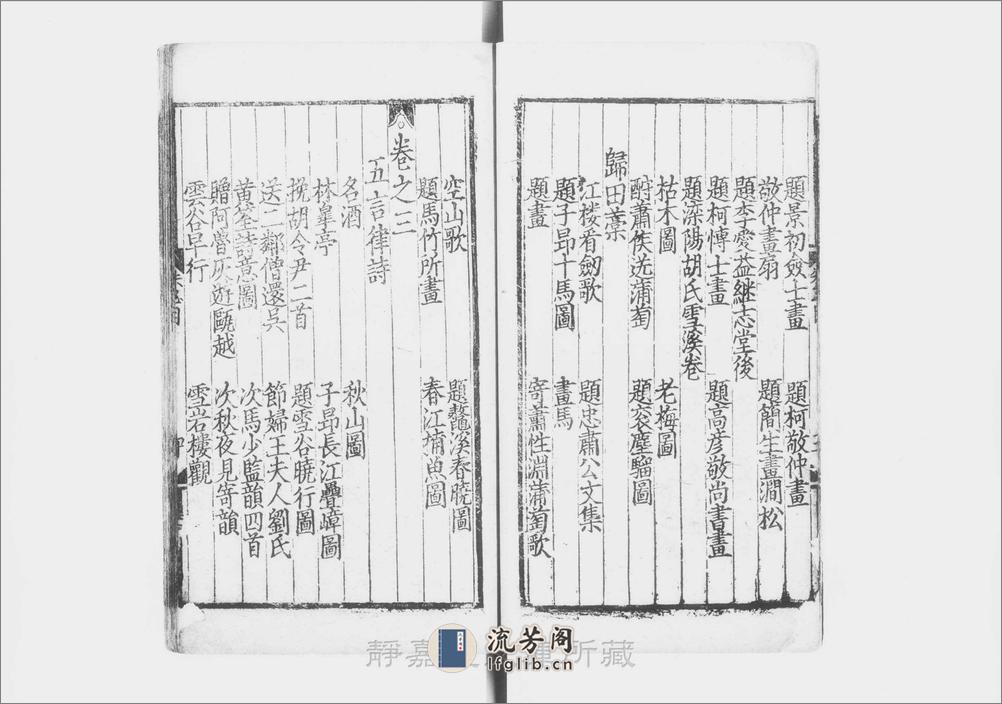 題景初僉士畫　題柯敬仲畫
敬仲畫扇　題簡生畫澗松
題李愛益継志堂後
題柯博士畫　題高彦敬尚書畫
題滦陽胡氏雪溪卷
枯木圖　老梅圖
酧蕭侁迯蒲萄　題衮塵騮圖
歸田藁
江楼看劔歌　題忠肅公文集
題子昂十馬圖　畫馬
題畫　寄蕭性淵蒲萄歌
空山歌　題鰲溪春暁圖
題馬竹所畫　春江捕魚圖
卷之三
五言律詩
名酒　秋山圖
林皐亭　子昂長江疊嶂圖
挽胡令尹二首　題雪谷曉行圖
送二鄰僧還吳　節婦王夫人劉氏
黄荃詩意圖　次馬少監韻四首
贈阿魯灰遊甌越　次秋夜見寄韻
雲谷早行　雪岩樓觀
靜嘉 所藏
流芳阁
lfglib.cn